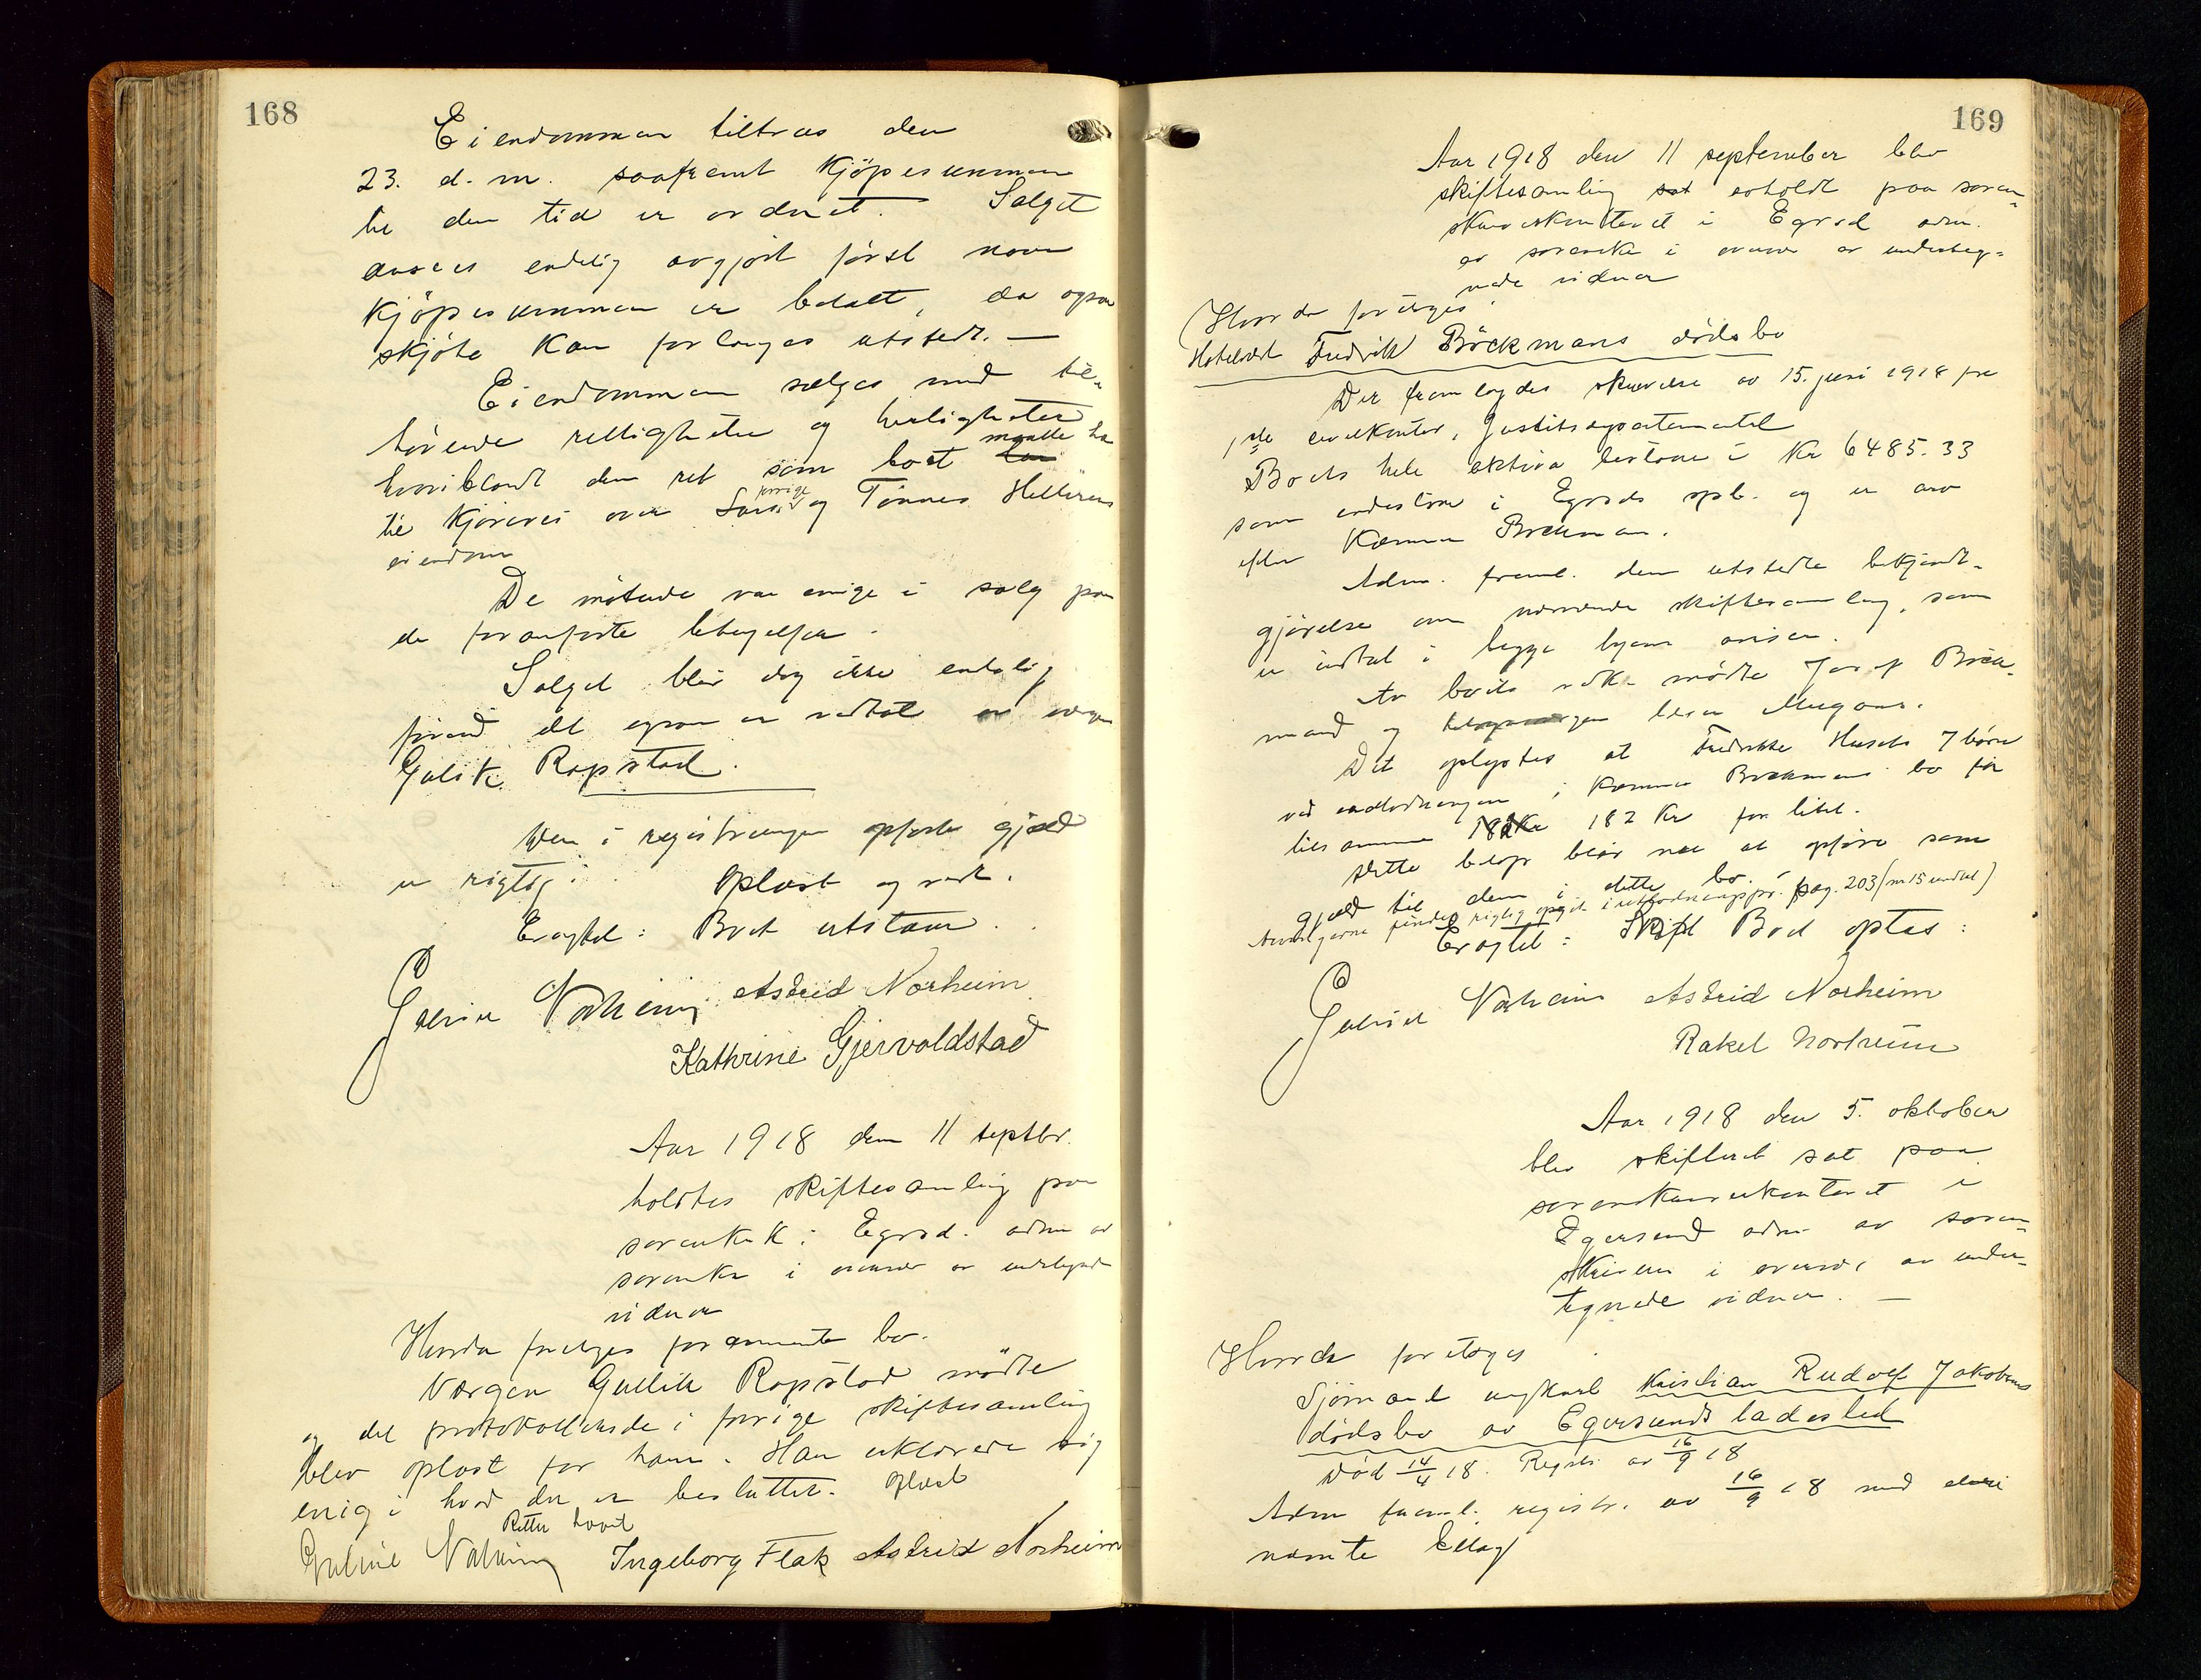 168
Eiendommen tiltraes den
23. d.m. saafremt Kjöpesummen
til den tid er ordnet. Salget
ansees endelig avgjort först naar
Kjöpesummen er betalt, da ogsaa
skjöte kan forlanges utstedt. —
Eiendommen sælges med til-
hörende rettigheter og herligheter
hvoriblandt den ret som boet maatte ha
til Kjörevei over Lars og Tönnes Hellerens
eiendom
De mötende var enige i salg paa
de foranförte betingelser.
Salget blir dog ikke endelig
förend det ogsaa er vedtat av vergen
Gulik Rapstad.
Den i registreringen opförte gjæld
er rigtig. Oplæst og vedt.
Eragtet: Boet utstaar.
Astrid Norheim
Kathrine Gjervoldstad
Aar 1918 den 11 septbr.
holdtes skiftesamling paa
sorenskk. i Egrsd. adm av
sorenskr i overvær av undertegnede
vidner
Hvorda foretoges forannævnte bo.
Vergen Gullik Rapstad mödte
og det protokollerede i forrige skiftesamling
blev oplæst for ham. Han erklærede sig
enig i hvad der er besluttet. Oplæst
Retten hævet
Ingeborg Flak Astrid Norheim
169
Aar 1918 den 11 september blev
skiftesamling sat avholdt paa soren-
skriverkontoret i Egrsd adm.
av sorenskr i overvær av underteg-
nede vidner
Hvorda foretoges
Hotelvært Fredrik Böckmans dödsbo
Der fremlagdes skrivelse av 15. juni 1918 fra
1ste civilkontor, Justitsdepartementet
Boets hele aktiva bestaar i Kr 6485.33
som indestaar i Egrsds spb. og er arv
efter Böckman.
Adm. freml. den utstedte bekjendt-
gjörelse om nærværende skiftesamling, som
er indtat i begge byens aviser.
Av boets vedk. mödte Josef Böck-
mand og
Det oplystes at Fredrikke Husebs 7 börn
ved utlodningen i Böckmans bo fik
tilsammen 182 Kr for litet.
Dette belöp blir nu at opföre som
gjæld til dem i dette bo.
Arvingerne findes rigtig opgit i utlodningspr. pag. 203 (nr 15 undtat)
Eragtet: Boet optas:
Astrid Norheim
Rakel Norheim
Aar 1918 den 5. oktober
blev skifteret sat paa
sorenskriverkontoret i
Egersund adm av soren-
skriveren i overvær av under-
tegnede vidner. —
Hvorda foretoges
Sjömand ungkarl Kristian Rudolf Jakobsens
dödsbo av Egersunds ladested
Död 14/4 18. Regstr. av 16/9 18
Adm freml. registr. av 16/9 18 med deri
nævnte bilag